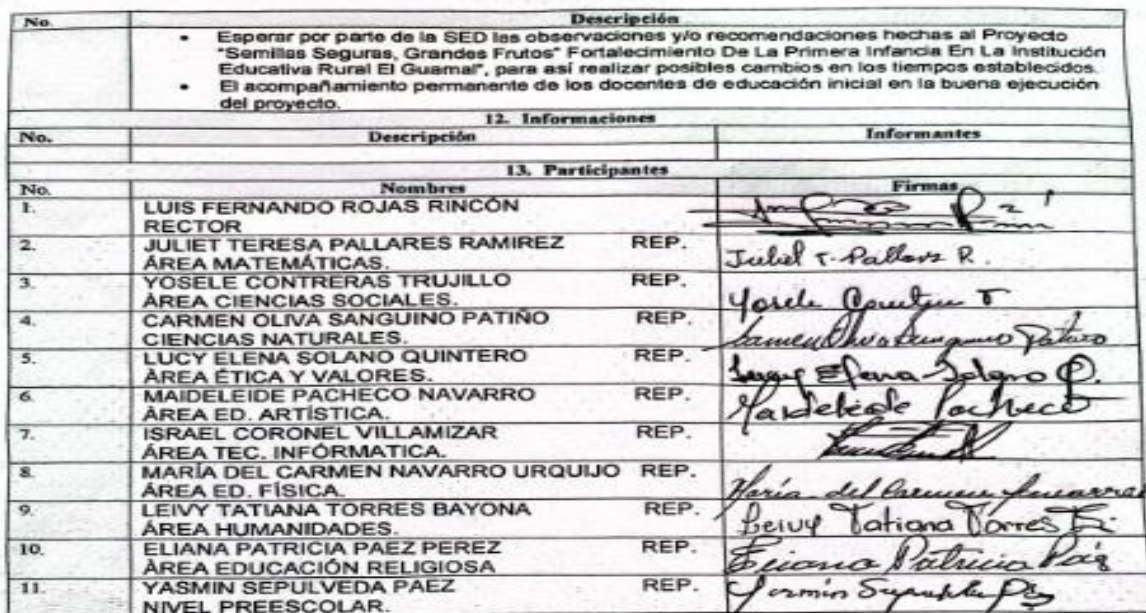 No. Descripción
• Esperar por parte de la SED las observaciones y/o recomendaciones hechas al Proyecto
"Semillas Seguras, Grandes Frutos" Fortalecimiento De La Primera Infancia En La Institución
Educativa Rural El Guamal", para así realizar posibles cambios en los tiempos establecidos.
• El acompañamiento permanente de los docentes de educación inicial en la buena ejecución
del proyecto.
12. Informaciones
No. Descripción Informantes
13. Participantes
No. Nombres Firmas
1. LUIS FERNANDO ROJAS RINCÓN
RECTOR
2. JULIET TERESA PALLARES RAMIREZ REP.
ÁREA MATEMÁTICAS. Juliet T. Pallares R.
3. YOSELE CONTRERAS TRUJILLO REP.
ÀREA CIENCIAS SOCIALES. Yosele Contreras T
4. CARMEN OLIVA SANGUINO PATIÑO REP.
CIENCIAS NATURALES. Carmen Oliva Sanguino Patiño
5. LUCY ELENA SOLANO QUINTERO REP.
ÀREA ÉTICA Y VALORES. Lucy Elena Solano Q.
6. MAIDELEIDE PACHECO NAVARRO REP.
ÀREA ED. ARTÍSTICA. Maideleide Pacheco
7. ISRAEL CORONEL VILLAMIZAR REP.
ÁREA TEC. INFÓRMATICA.
8. MARÍA DEL CARMEN NAVARRO URQUIJO REP.
ÁREA ED. FÍSICA. María del Carmen Navarro
9. LEIVY TATIANA TORRES BAYONA REP.
ÁREA HUMANIDADES. Leivy Tatiana Torres B.
10. ELIANA PATRICIA PAEZ PEREZ REP.
ÀREA EDUCACIÓN RELIGIOSA Eliana Patricia Paéz
11. YASMIN SEPULVEDA PAEZ REP.
NIVEL PREESCOLAR. Yasmin Sepulveda Pz